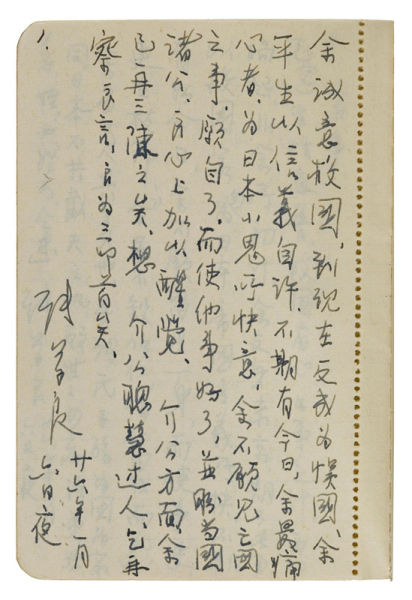 余誠意救國，到現在反成為悞國，余
平生以信義自許，不期有今日，余最痛
心者，为日本小鬼所快意，余不願見亡國
之事，願自了，而使他事好了，並盼当國
諸公，良心上加以醒覺，介公方面余
已再三陳之矣，想介公聰慧过人，乞再
察良言，良为三叩首矣，
張学良
廿六年一月
六日夜
1.